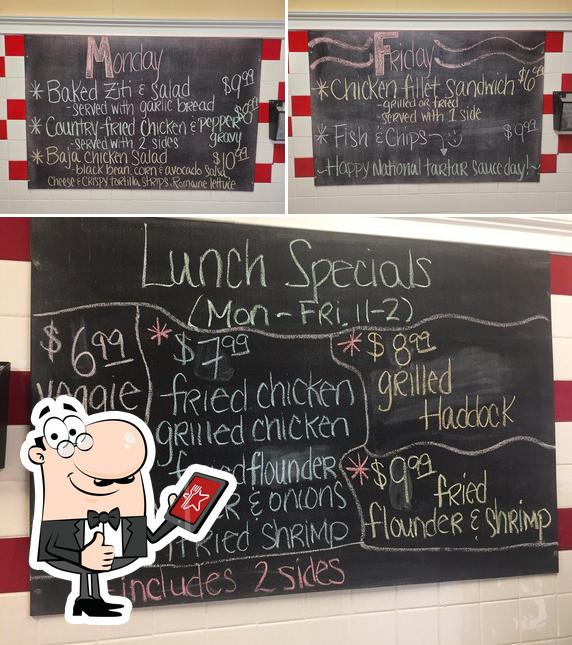 Monday
* Baked Ziti & Salad $9.99
- served with garlic bread
* Country-fried Chicken & Pepper
gravy
- served with 2 sides
* Baja chicken Salad $10.99
- black bean, corn & avocado salsa
Cheese & CRISPY tortilla STRIPS, Romaine lettuce
Friday
* Chicken fillet Sandwich $6.99
- grilled or fried
served with 1 side
* Fish & Chips $9.99
~Happy National tartar sauce day!~
Lunch Specials
(Mon - FRI. 11-2)
$6.99
veggie
* $7.99
fried chicken
grilled chicken
fried flounder
& onions
fried SHRIMP
* $8.99
grilled
Haddock
* $9.99
fried
flounder & shrimp
includes 2 sides